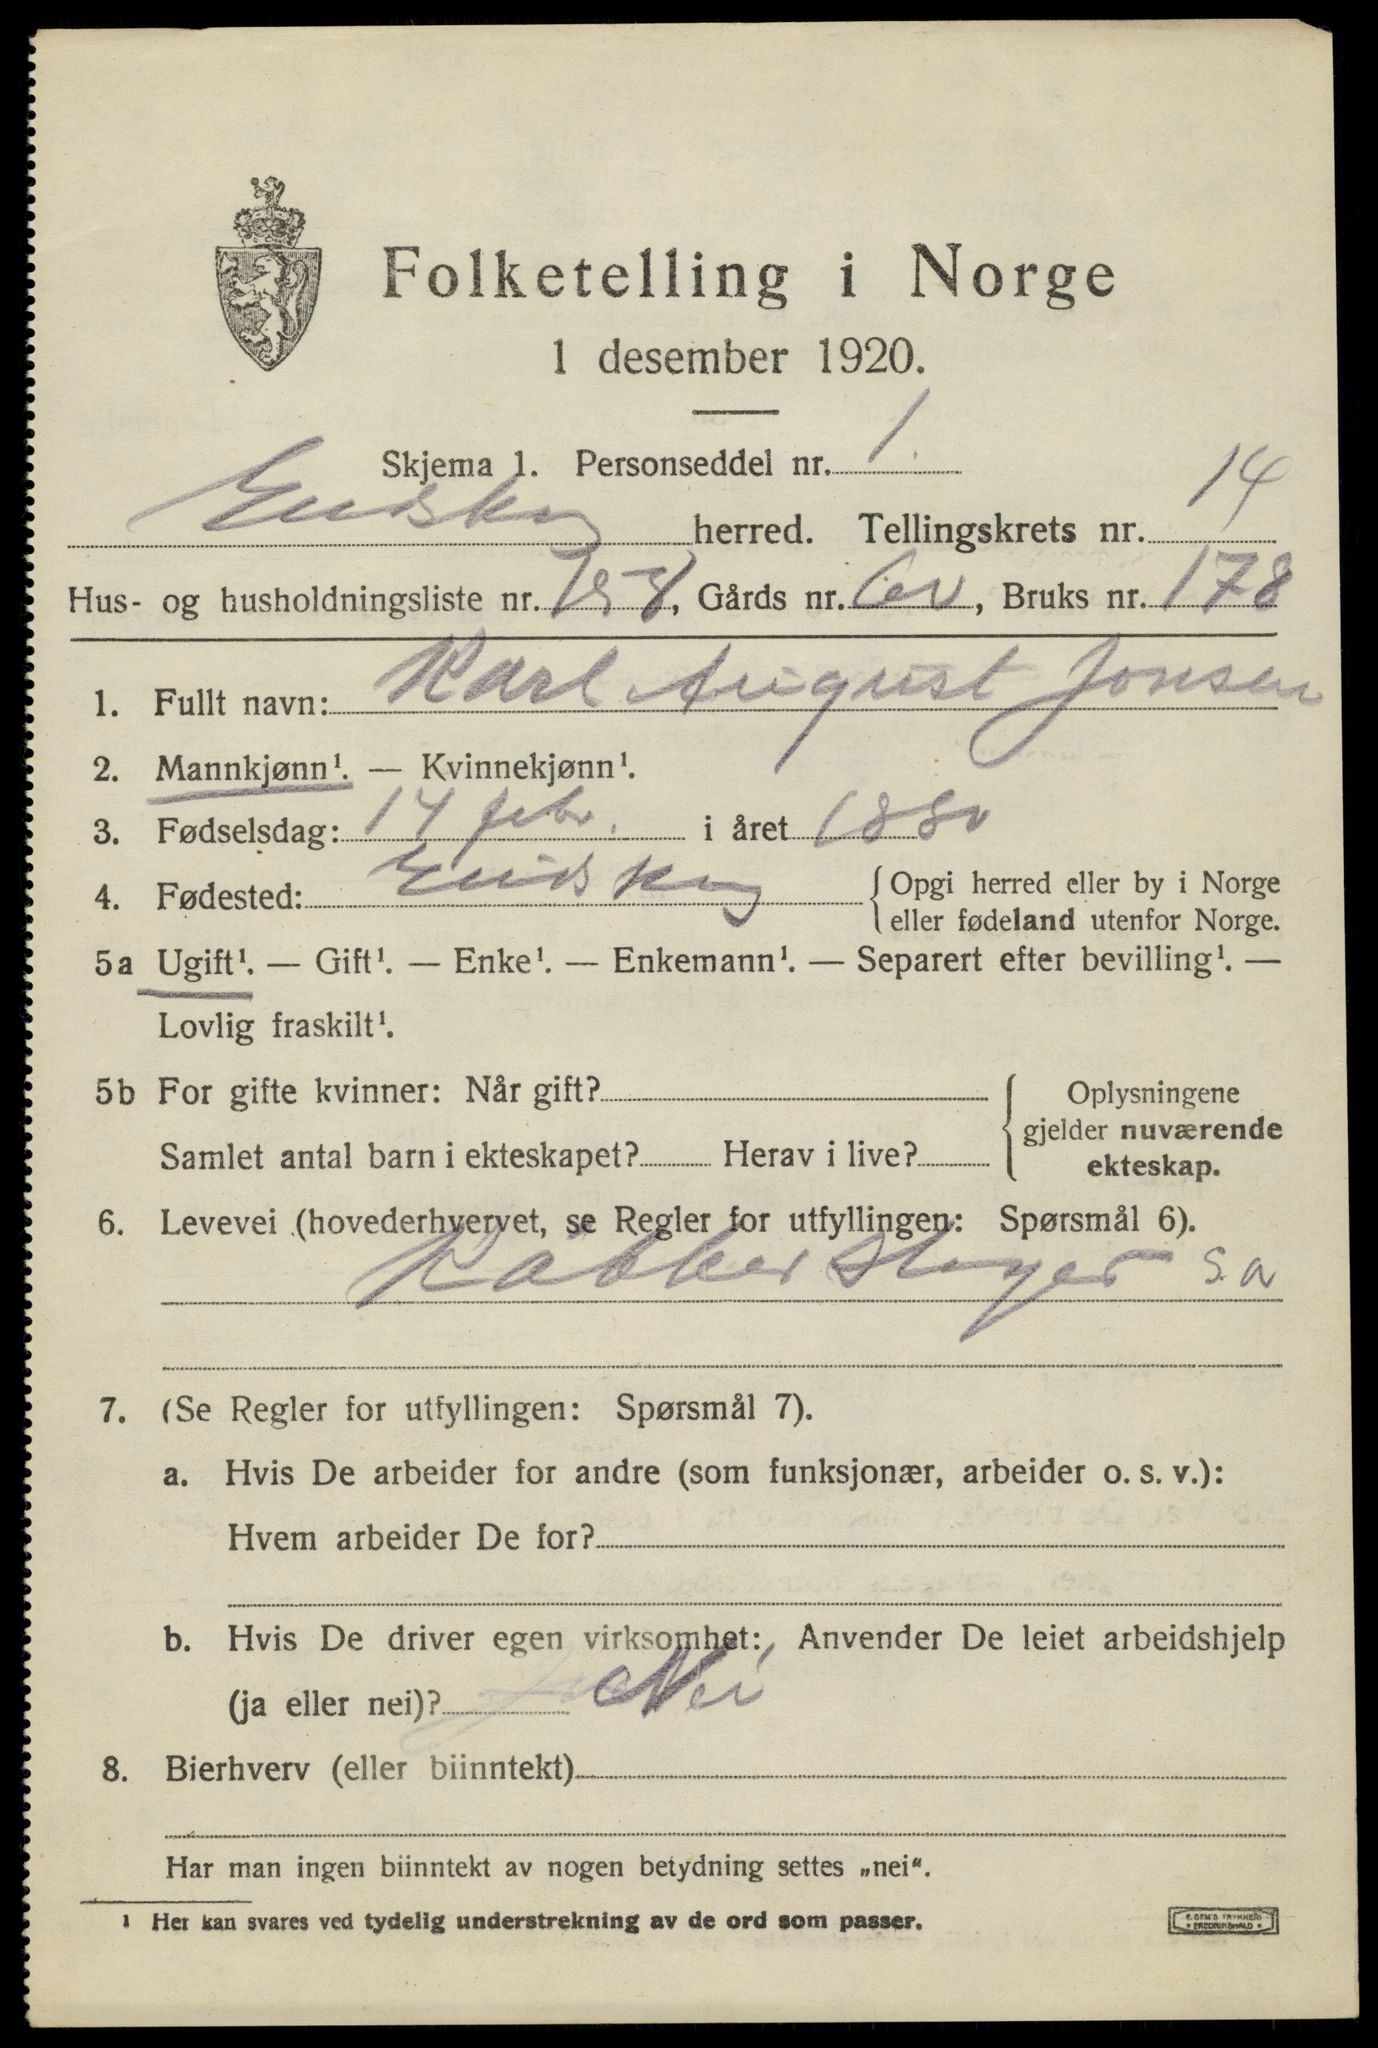 Folketelling i Norge
1 desember 1920.
Skjema 1. Personseddel nr. 1.
Eidskog herred. Tellingskrets nr. 14
Hus- og husholdningsliste nr. , Gårds nr. , Bruks nr. 178
1. Fullt navn: Karl August Jonsen
2. Mannkjønn¹. — Kvinnekjønn¹.
3. Fødselsdag: 14 febr. i året 1880
4. Fødested: Eidskog {Opgi herred eller by i Norge
eller fødeland utenfor Norge.
5a Ugift¹. — Gift¹. — Enke¹. — Enkemann¹. — Separert efter bevilling¹. —
Lovlig fraskilt¹.
5b For gifte kvinner: Når gift?
Samlet antal barn i ekteskapet? Herav i live?
Oplysningene
gjelder nuværende
ekteskap.
6. Levevei (hovederhvervet, se Regler for utfyllingen: Spørsmål 6).
s.a
7. (Se Regler for utfyllingen: Spørsmål 7).
a. Hvis De arbeider for andre (som funksjonær, arbeider o. s. v.):
Hvem arbeider De for?
b. Hvis De driver egen virksomhet: Anvender De leiet arbeidshjelp
(ja eller nei)? Nei
8. Bierhverv (eller biinntekt)
Har man ingen biinntekt av nogen betydning settes „nei“.
1 Her kan svares ved tydelig understrekning av de ord som passer.
E. SEM'S TRYKKERI
FREDRIKSHALD